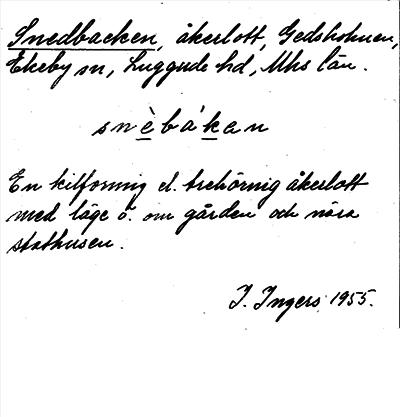 Snedbacken, åkerlott, Gedsholmen,
Ekeby sn, Luggude hd, Mhs län.
snèbákan
En kilformig el. trehörnig åkerlott
med läge ö. om gården och nära
stathusen.
I. Ingers 1955.